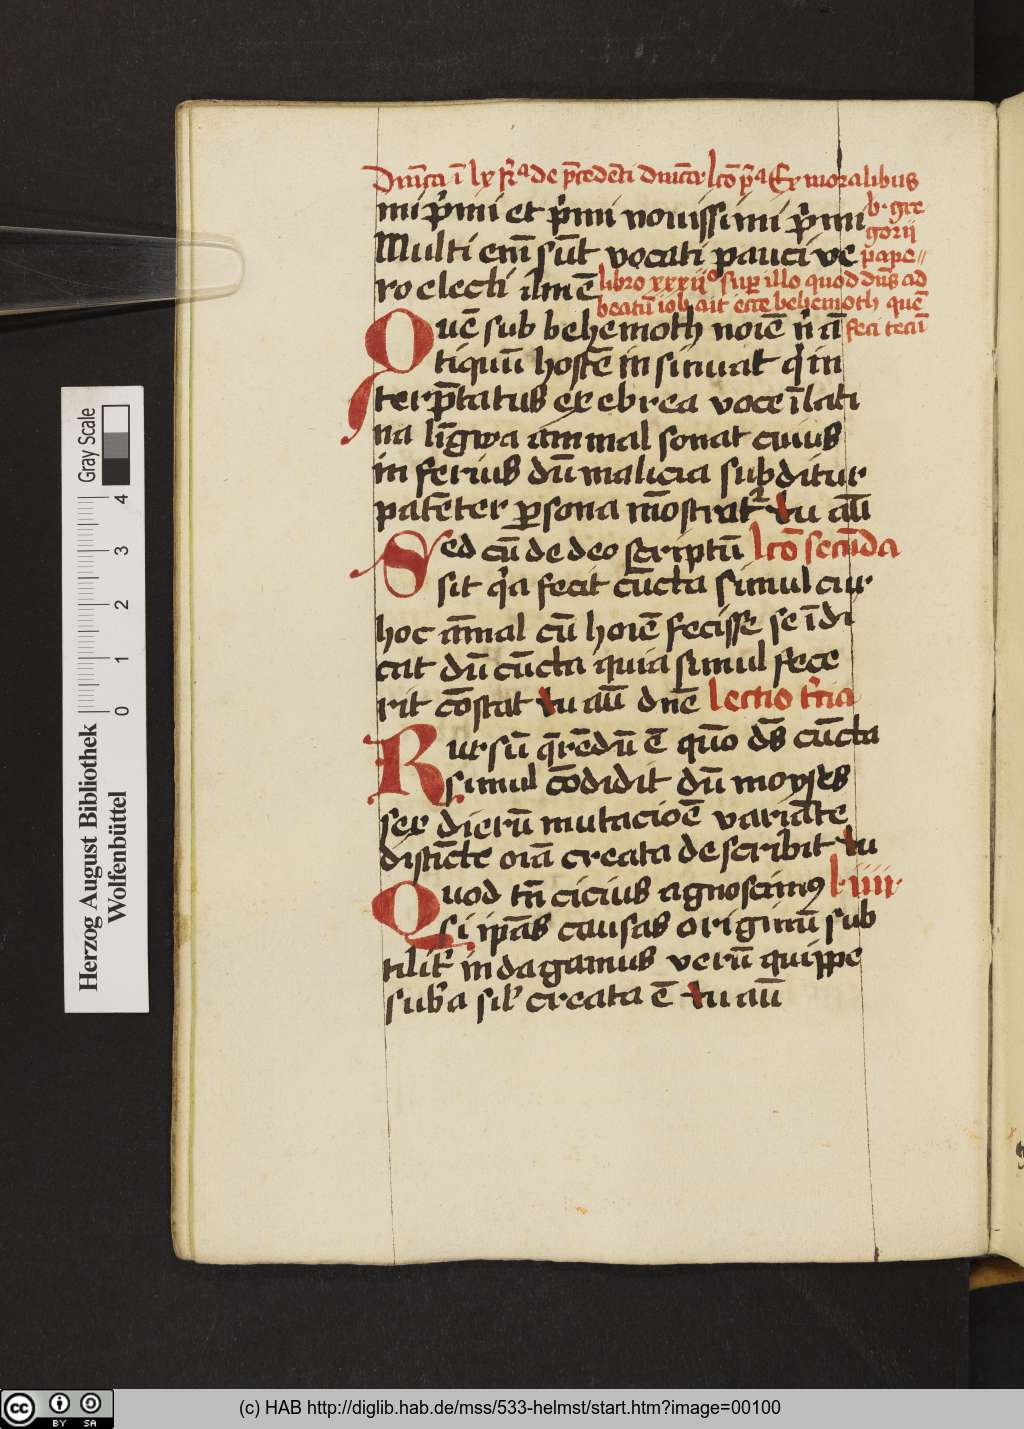 Dnĩca ĩ lx fr̃ᵃ de p̃cedẽti dnĩca lcõ p̃ᵃ Ex moralibus
b. gre
gorii
pape
mi p̃mi et p̃mi nouissimi p̃mi
Multi enĩ sũt vocati pauci ve
ro electi ĩlmẽ
libro xxxiiᵒ sup illo quod dñs ad
beatũ iob ait ecce behemoth quẽ
feci tecũ
Quẽ sub behemoth noiẽ ñ ã
tiquũ hostẽ in sinuat qͥ in
terp̃tatus ex ebrea voce ĩ lati
na lĩgwa animal sonat cuius
in ferius dũ malicia subditur
patẽter psona mõstratr tu aũ
Sed cũ de deo scriptũ lcõ secũda
sit qͥa fecit cũcta simul cur
hoc aĩmal cũ hoiẽ fecisse se ĩdi
cat dũ cũcta quia simul fece
rit cõstat tu aũ dnẽ lectio tr̃cia
Rursũ q̃rẽdũ ẽ quõ dẽs cũcta
simul cõdidit dũ moyses
sex dierũ mutacioẽ variãte
distĩcte oĩa creata describit tu
Quod tñ cicius agnoscimꝰ l. iiii.
si ip̃as causas originũ sub
tilit̃ indagamus verũ quippe
suba sil̕ creata ẽ tu aũ
Gray Scale
0 1 2 3 4
Herzog August Bibliothek
Wolfenbüttel
cc BY SA
(c) HAB http://diglib.hab.de/mss/533-helmst/start.htm?image=00100